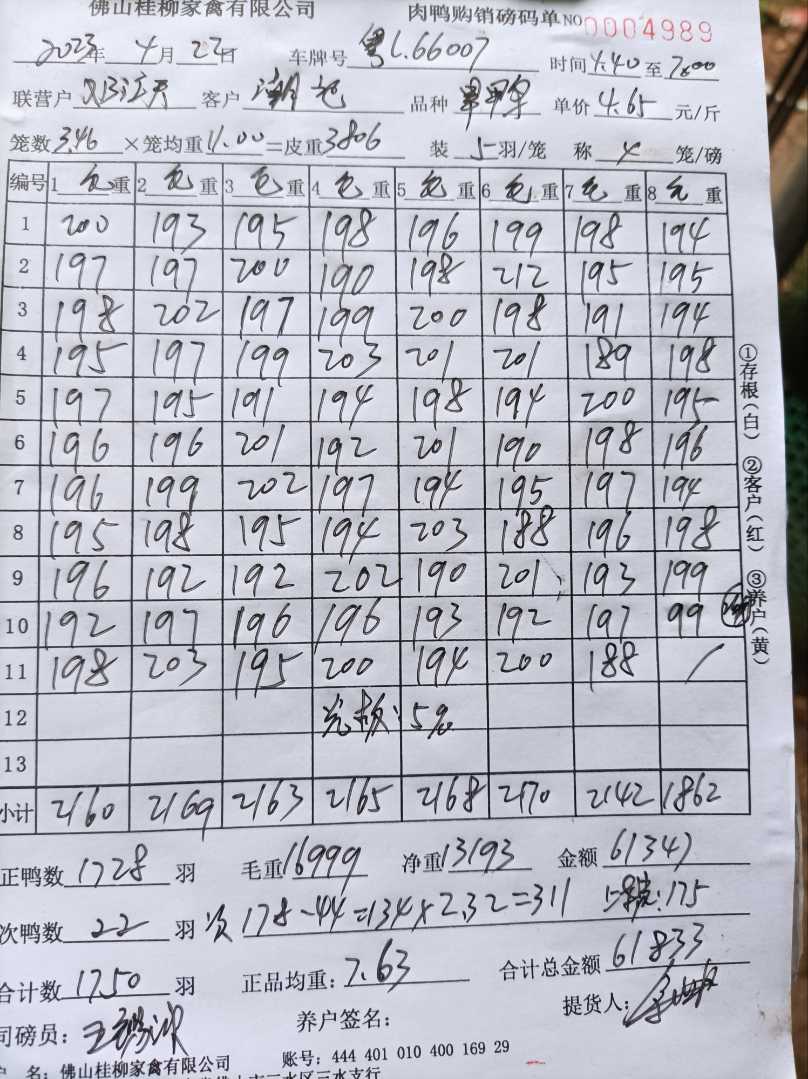 佛山桂柳家禽有限公司 肉鸭购销磅码单 NO 0004989
2023年 4月 22日 车牌号 粤L.66007 时间 4.40 至 7.00
联营户 客户 潮 品种 单价 4.65 元/斤
笼数 346 ×笼均重 11.00 =皮重 3806 装 5 羽/笼 称 4 笼/磅
编号 1 毛重 2 毛重 3 毛重 4 毛重 5 毛重 6 毛重 7 毛重 8 毛重
1 200 193 195 198 196 199 198 194
2 197 197 200 190 198 212 195 195
3 198 202 197 199 200 198 191 194
4 195 197 199 203 201 201 189 198
5 197 195 191 194 198 194 200 195
6 196 196 201 192 201 190 198 196
7 196 199 202 197 194 195 197 194
8 195 198 195 194 203 188 196 198
9 196 192 192 202 190 201 193 199
10 192 197 196 196 193 192 197 99
11 198 203 195 200 194 200 188 /
12 光板:5%
13
小计 2160 2169 2163 2165 2168 2170 2142 1862
正鸭数 1728 羽 毛重 16999 净重 13193 金额 61347
次鸭数 22 羽 次 178-44=134×2.32=311 :175
合计数 1750 羽 正品均重: 7.63 合计总金额 61833
司磅员: 养户签名: 提货人:
户 名: 佛山桂柳家禽有限公司 账号: 444 401 010 400 169 29
三水区三水支行
①存根(白) ②客户(红) ③养户(黄)